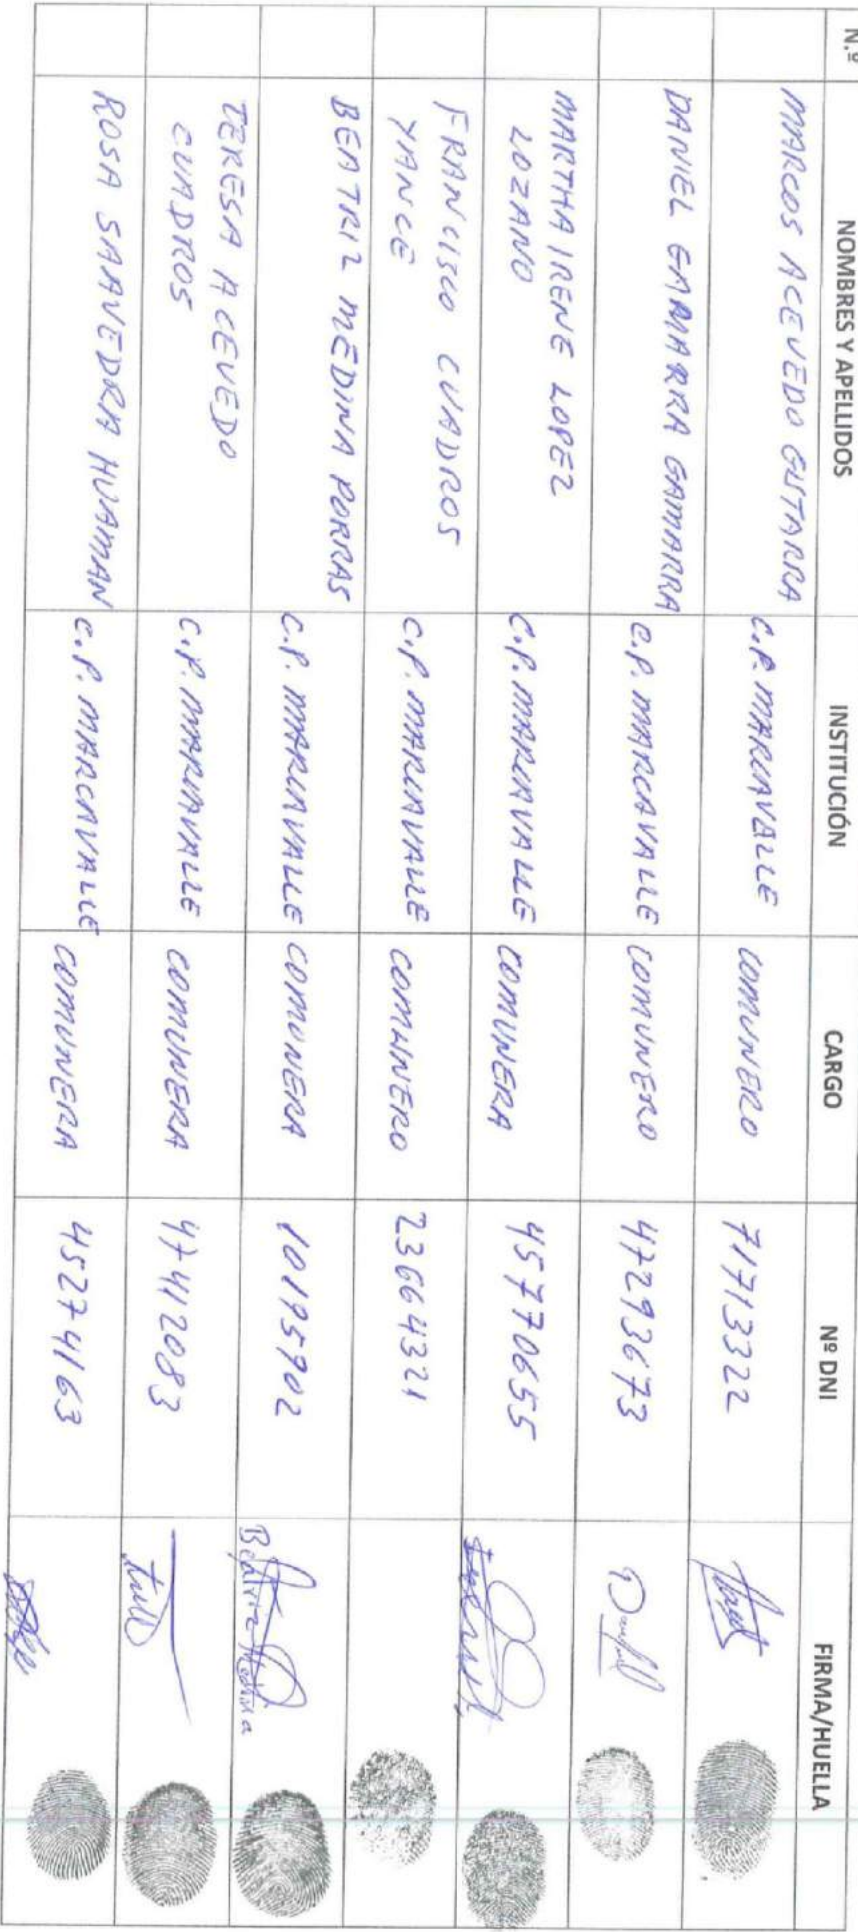 N.º NOMBRES Y APELLIDOS INSTITUCIÓN CARGO Nº DNI FIRMA/HUELLA
MARCOS ACEVEDO GUTARRA C.P. MARCAVALLE COMUNERO 71713322
DANIEL GAMARRA GAMARRA C.P. MARCAVALLE COMUNERO 47293673
MARTHA IRENE LOPEZ
LOZANO C.P. MARCAVALLE COMUNERA 45770655
FRANCISCO CUADROS
YANCE C.P. MARCAVALLE COMUNERO 23664321
BEATRIZ MEDINA PORRAS C.P. MARCAVALLE COMUNERA 10195902 Beatriz Medina
TERESA ACEVEDO
CUADROS C.P. MARCAVALLE COMUNERA 47412083
ROSA SAAVEDRA HUAMAN C.P. MARCAVALLE COMUNERA 45274163